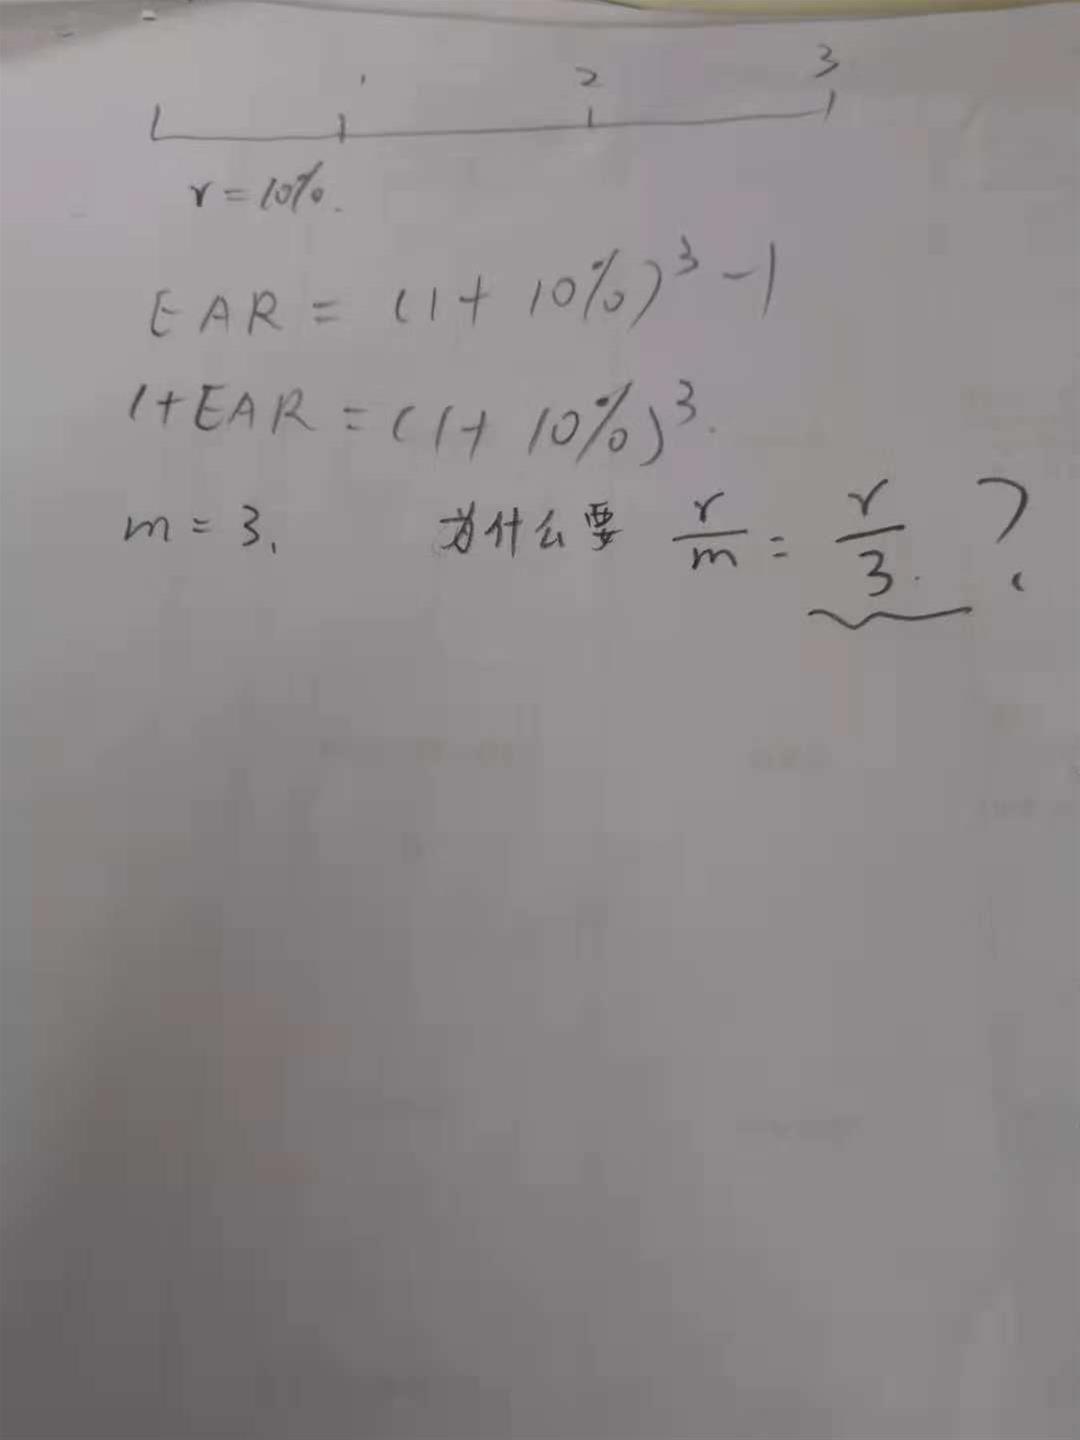 1 2 3
r = 10%.
EAR = (1 + 10%)³ - 1
1+EAR = (1 + 10%)³.
m = 3, 为什么要 r/m = r/3. ?